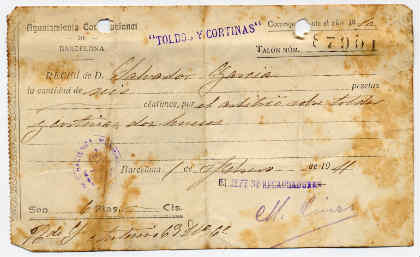 Ayuntamiento Constitucional
DE
BARCELONA
"TOLDOS Y CORTINAS"
Correspondiente al año 19
TALÓN NÚM. 87951
RECIBÍ de D. Salvador García
la cantidad de seis pesetas
céntimos, por el arbitrio sobre toldos
y cortinas dos huecos
Barcelona 1 de Febrero de 19
EL JEFE DE RECAUDADORES
Son 6 Ptas. Cts.